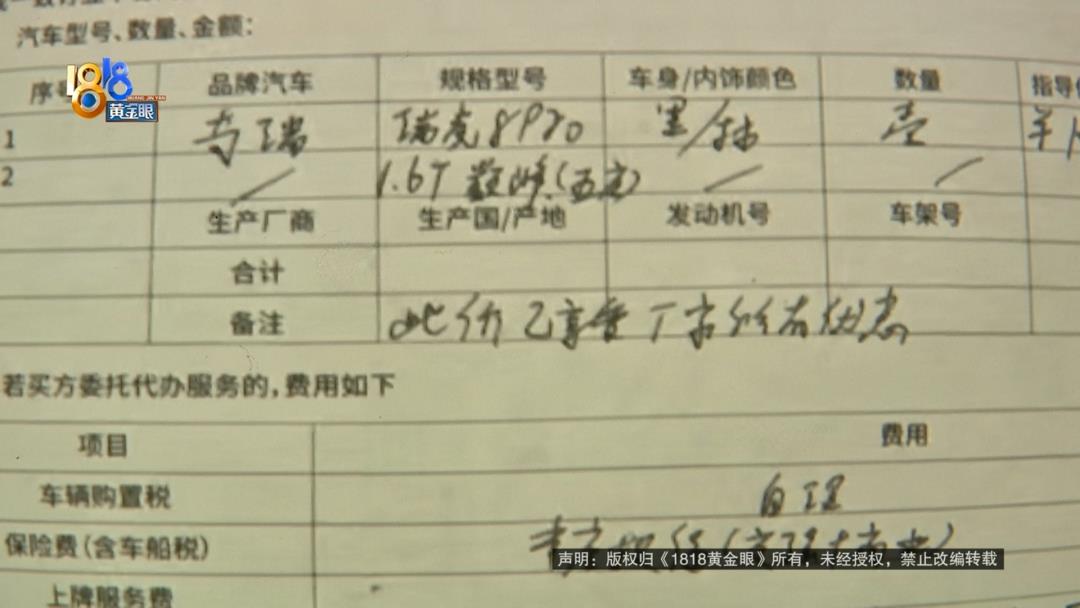 汽车型号、数量、金额:
序 品牌汽车 规格型号 车身/内饰颜色 数量 指导
1 奇瑞 瑞虎8PRO 黑/ 壹
2 1.6T (五座)
生产厂商 生产国/产地 发动机号 车架号
合计
备注 此价已享受厂方所有优惠
若买方委托代办服务的,费用如下
项目 费用
车辆购置税 自理
保险费(含车船税)
上牌服务费
1818
黄金眼
HUANG JIN YAN
声明：版权归《1818黄金眼》所有，未经授权，禁止改编转载